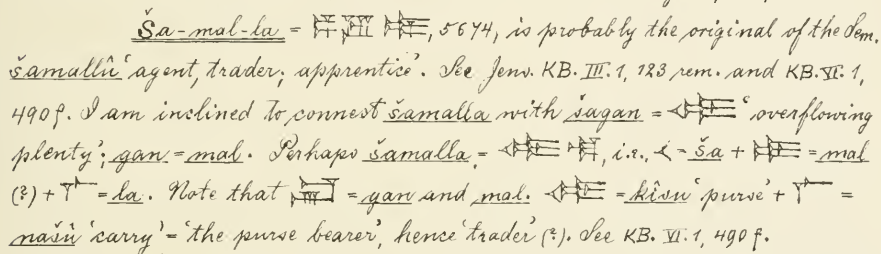 Ša-mal-la = 5674, is probably the original of the Sem.
šamallû 'agent, trader; apprentice'. See Jens. KB. III. 1, 123 rem. and KB. VI. 1,
490 f. I am inclined to connect šamalla with šagan = 'overflowing
plenty'; gan = mal. Perhaps šamalla = , i.e., = ša + = mal
(?) + = la. Note that = gan and mal. = kîsu 'purse' + =
našû 'carry' = 'the purse bearer', hence 'trader' (?). See KB. VI. 1, 490 f.